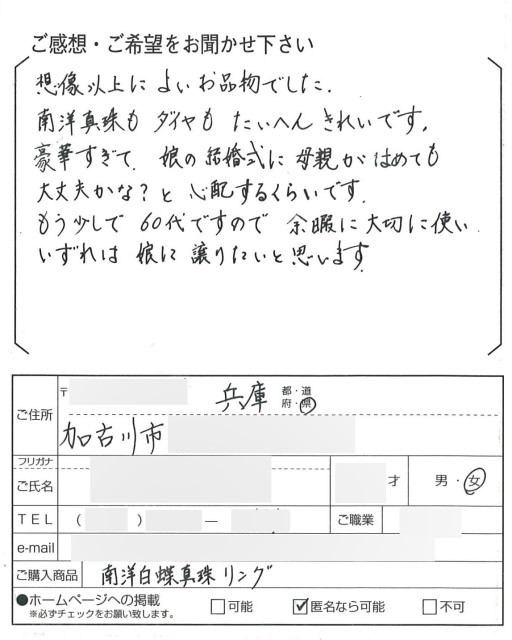 ご感想・ご希望をお聞かせ下さい
想像以上によいお品物でした.
南洋真珠も ダイヤも たいへん きれいです。
豪華すぎて、娘の結婚式に母親がはめても
大丈夫かな?と 心配するくらいです.
もう少しで 60代ですので 余暇に大切に使い
いずれは 娘に 譲りたいと思います
ご住所 〒 兵庫 都・道 府・県
加古川市
フリガナ
ご氏名 才 男・女
TEL ( ) ― ご職業
e-mail
ご購入商品 南洋白蝶真珠リング
●ホームページへの掲載 □可能 ☑匿名なら可能 □不可
※必ずチェックをお願い致します。